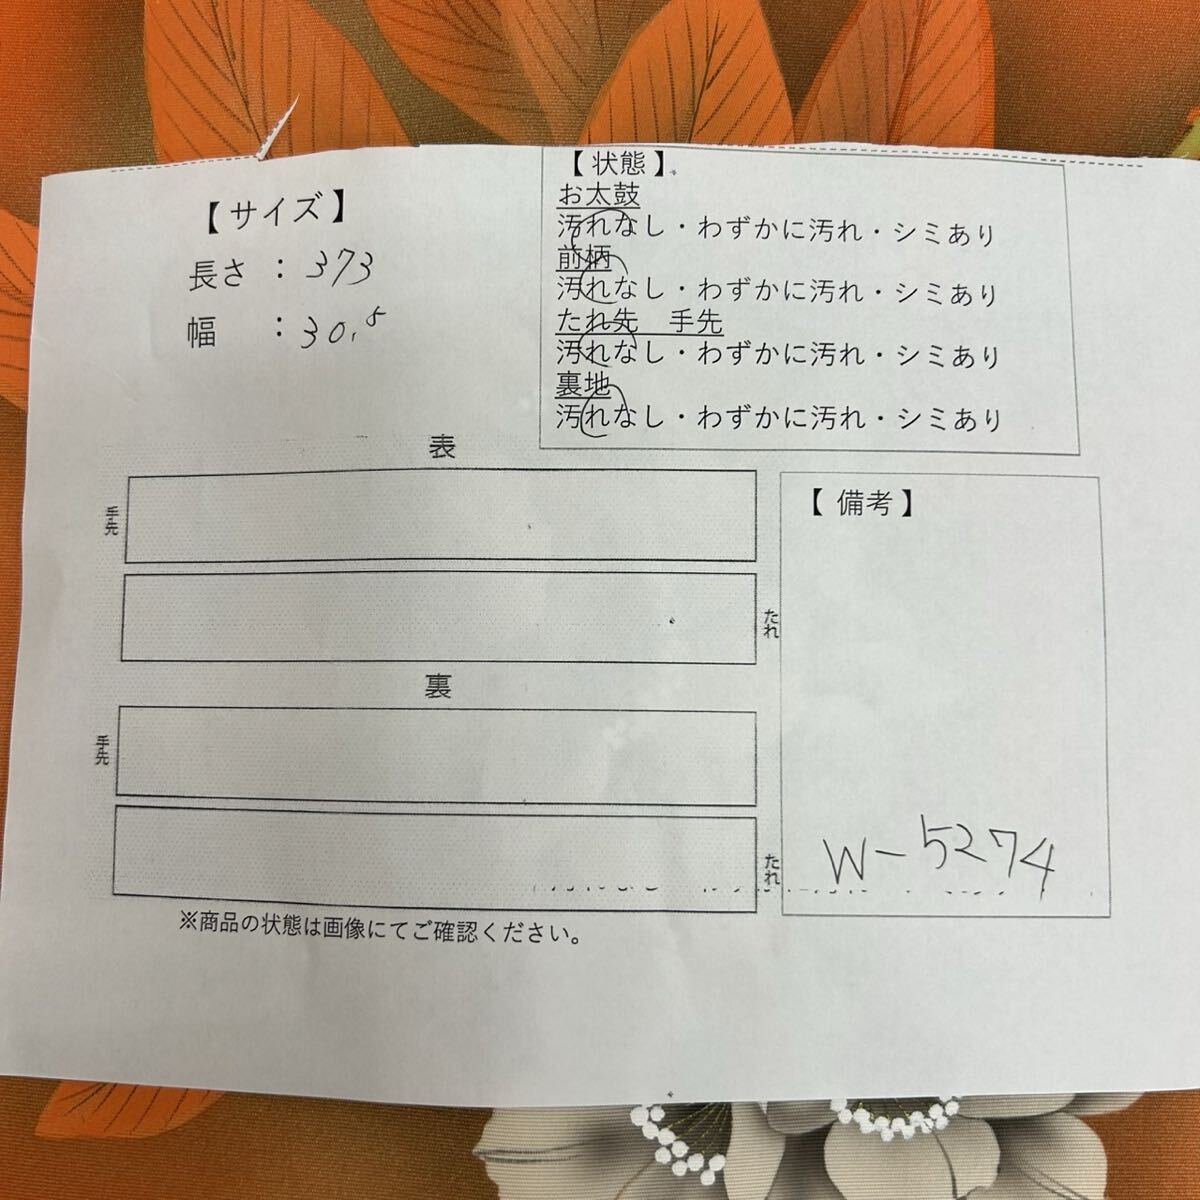 【サイズ】
長さ : 373
幅 : 30.5
【状態】
お太鼓
汚れなし・わずかに汚れ・シミあり
前柄
汚れなし・わずかに汚れ・シミあり
たれ先 手先
汚れなし・わずかに汚れ・シミあり
裏地
汚れなし・わずかに汚れ・シミあり
表
手先
たれ
裏
手先
たれ
【備考】
W-5274
※商品の状態は画像にてご確認ください。